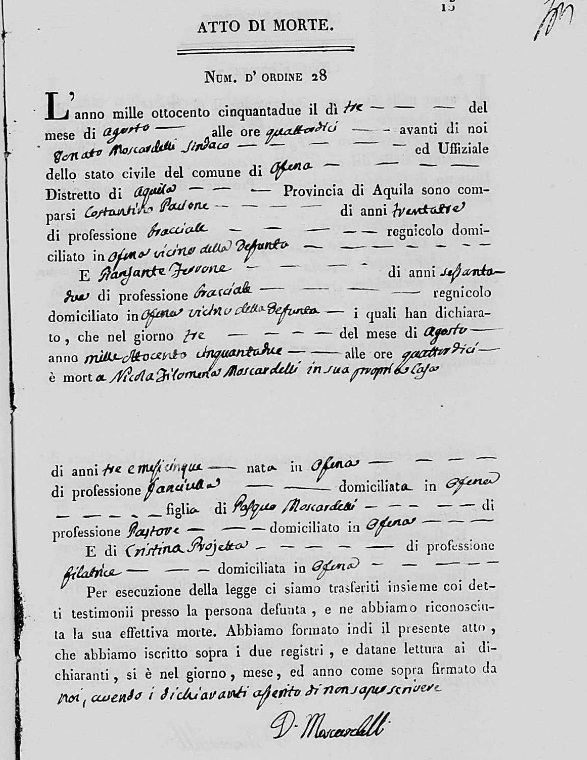 15
ATTO DI MORTE.
NUM. D' ORDINE 28
L'anno mille ottocento cinquantadue il dì tre — — — del
mese di agosto — alle ore quattordici — — avanti di noi
Donato Moscardelli Sindaco — — — — ed Uffiziale
dello stato civile del comune di Ofena — — — —
Distretto di Aquila — — — Provincia di Aquila sono com-
parsi Costantino — — — — di anni trentatre
di professione bracciale — — — — regnicolo domi-
ciliato in Ofena vicino della Defunta — — — — — —
E Ferrone — — — — di anni sessanta
due di professione bracciale — — — — regnicolo
domiciliato in Ofena vicino della Defunta — i quali han dichiara-
to , che nel giorno tre — — — del mese di Agosto —
anno mille Ottocento cinquantadue — — alle ore quattordici —
è morta Nicola Filomena Moscardelli in sua propria Casa
di anni tre e mesi cinque — nata in Ofena — — — —
di professione Fanciulla — — — domiciliata in Ofena
— — — — — figlia di Moscardelli — — — — di
professione Pastore — — — domiciliato in Ofena — — — —
E di Cristina Projetta — — — — — di professione
filatrice — — — domiciliata in Ofena — — — — —
Per esecuzione della legge ci siamo trasferiti insieme coi det-
ti testimonii presso la persona defunta , e ne abbiamo riconosciu-
ta la sua effettiva morte. Abbiamo formato indi il presente atto ,
che abbiamo iscritto sopra i due registri , e datane lettura ai di-
chiaranti , si è nel giorno , mese, ed anno come sopra firmato da
noi, avendo i dichiaranti asserito di non saper scrivere
D. Moscardelli